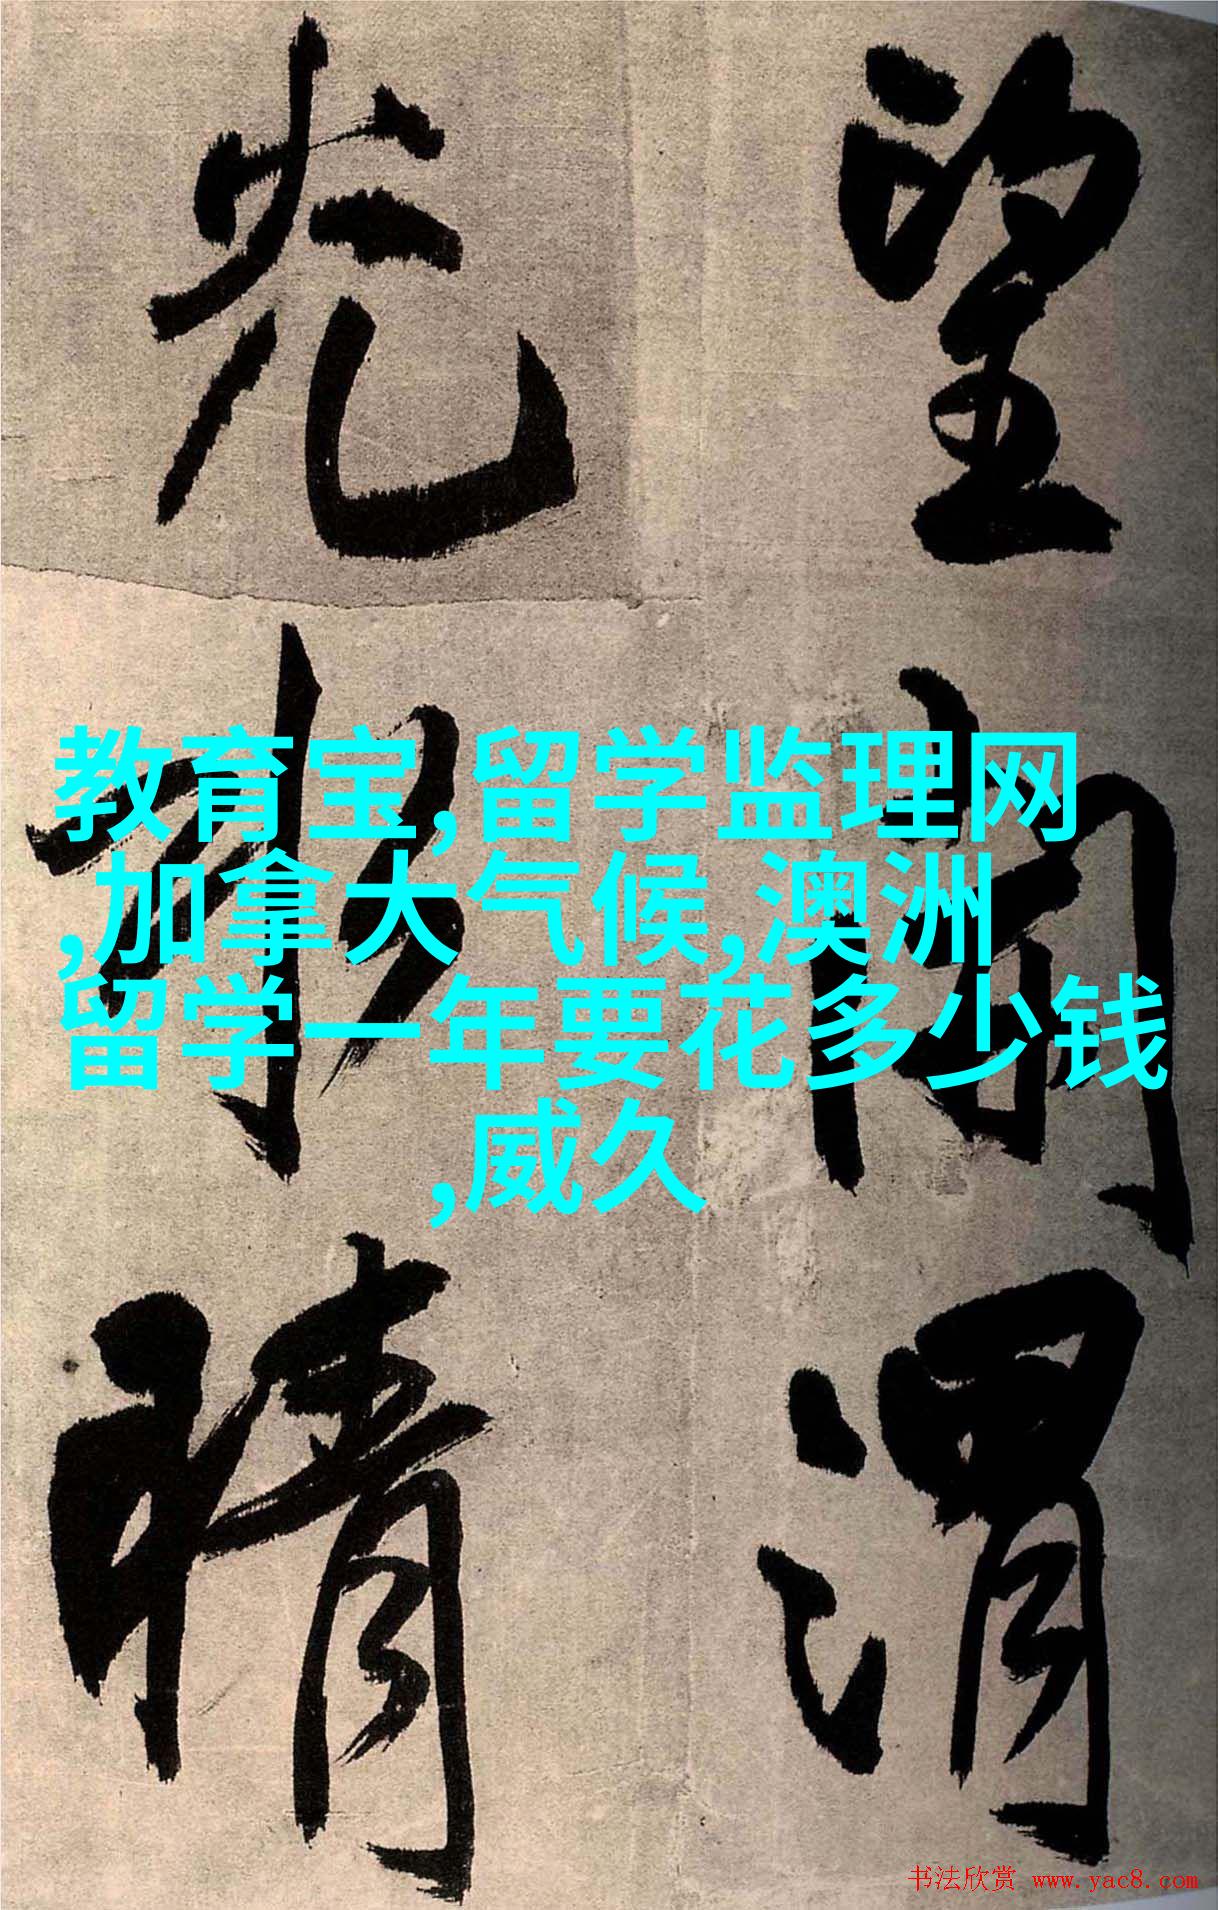 望闲渭
光水晴
教育宝,留学监理网
,加拿大气候,澳洲
留学一年要花多少钱
,威久
书法欣赏 www.yac8.com